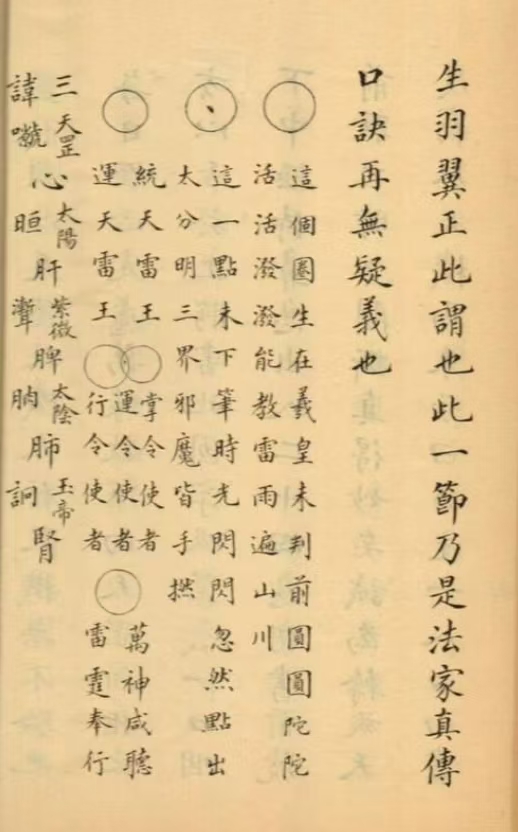 生羽翼正此謂也此一節乃是法家真傳
口訣再無疑義也
這個圈生在羲皇未判前圓圓陀陀
活活潑潑能教雷雨遍山川
這一點未下筆時光閃閃忽然點出
太分明三界邪魔皆手撚
統天雷王
運天雷王
掌令使者
運令使者
行令使者
萬神咸聽
雷霆奉行
三天罡
太陽
紫微
太陰
玉帝
心肝脾肺腎
諱
晅
詗